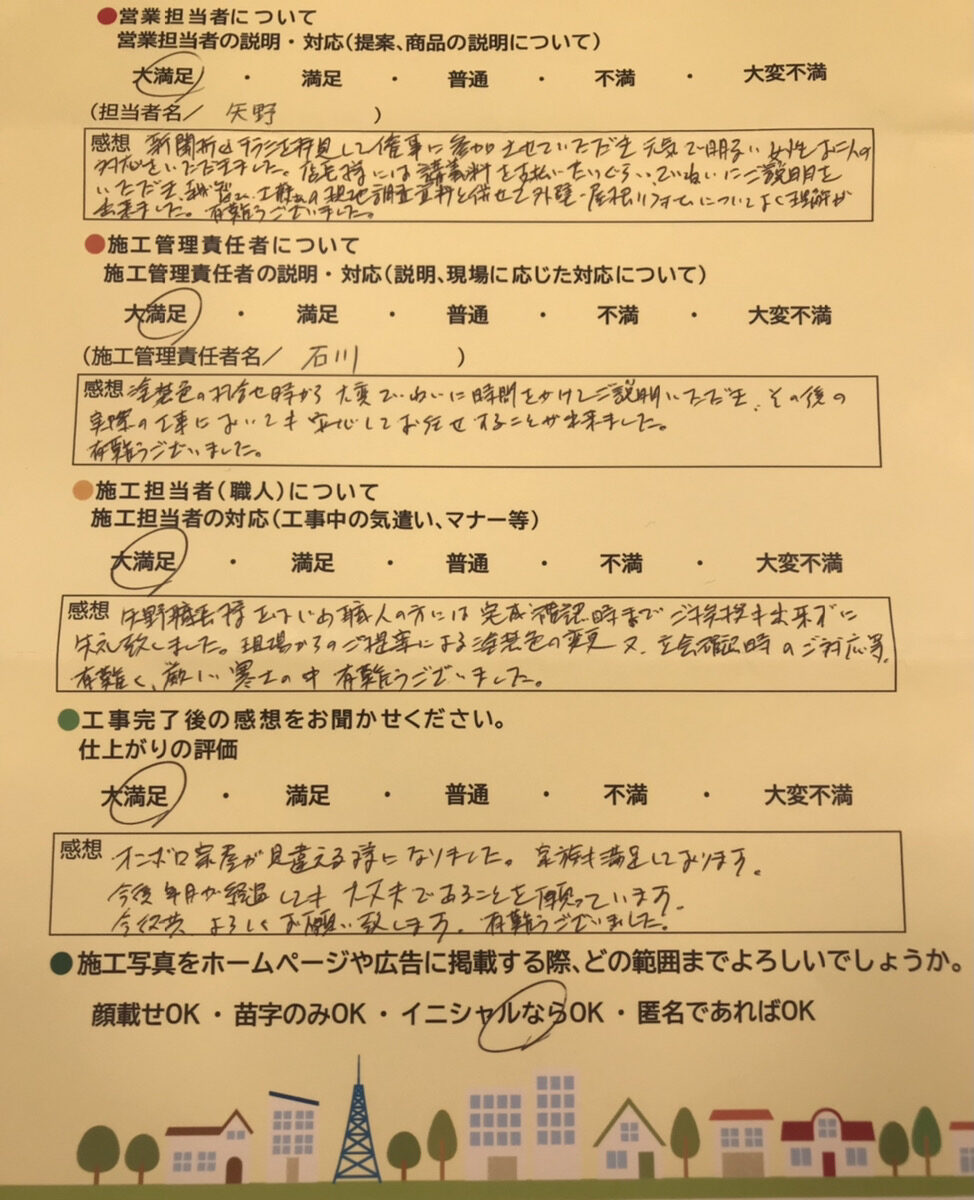 ●営業担当者について
営業担当者の説明・対応(提案、商品の説明について)
大満足 ・ 満足 ・ 普通 ・ 不満 ・ 大変不満
(担当者名/ 矢野 )
感想 新聞折込チラシを拝見して催事に参加させていただき元気で明るい女性お二人の
対応をいただきました。店長様には講義料を支払いたいぐらいていねいにご説明を
いただき、 現地調査資料と併せて外壁・屋根リフォームについてよく理解が
出来ました。有難うございました。
●施工管理責任者について
施工管理責任者の説明・対応(説明、現場に応じた対応について)
大満足 ・ 満足 ・ 普通 ・ 不満 ・ 大変不満
(施工管理責任者名/ 石川 )
感想 塗装色の打合せ時から大変ていねいに時間をかけてご説明いただき、その後の
実際の工事においても安心してお任せすることが出来ました。
有難うございました。
●施工担当者(職人)について
施工担当者の対応(工事中の気遣い、マナー等)
大満足 ・ 満足 ・ 普通 ・ 不満 ・ 大変不満
感想 矢野職長様をはじめ職人の方には完成確認時までご挨拶も出来ずに
失礼致しました。現場からのご提案による塗装色の変更又、立会確認時のご対応等、
有難く、厳しい寒さの中有難うございました。
●工事完了後の感想をお聞かせください。
仕上がりの評価
大満足 ・ 満足 ・ 普通 ・ 不満 ・ 大変不満
感想 オンボロ家屋が見違える様になりました。家族も満足しております。
今後年月が経過しても大丈夫であることを願っています。
今後共、よろしくお願い致します。有難うございました。
●施工写真をホームページや広告に掲載する際、どの範囲までよろしいでしょうか。
顔載せOK・苗字のみOK・イニシャルならOK・匿名であればOK